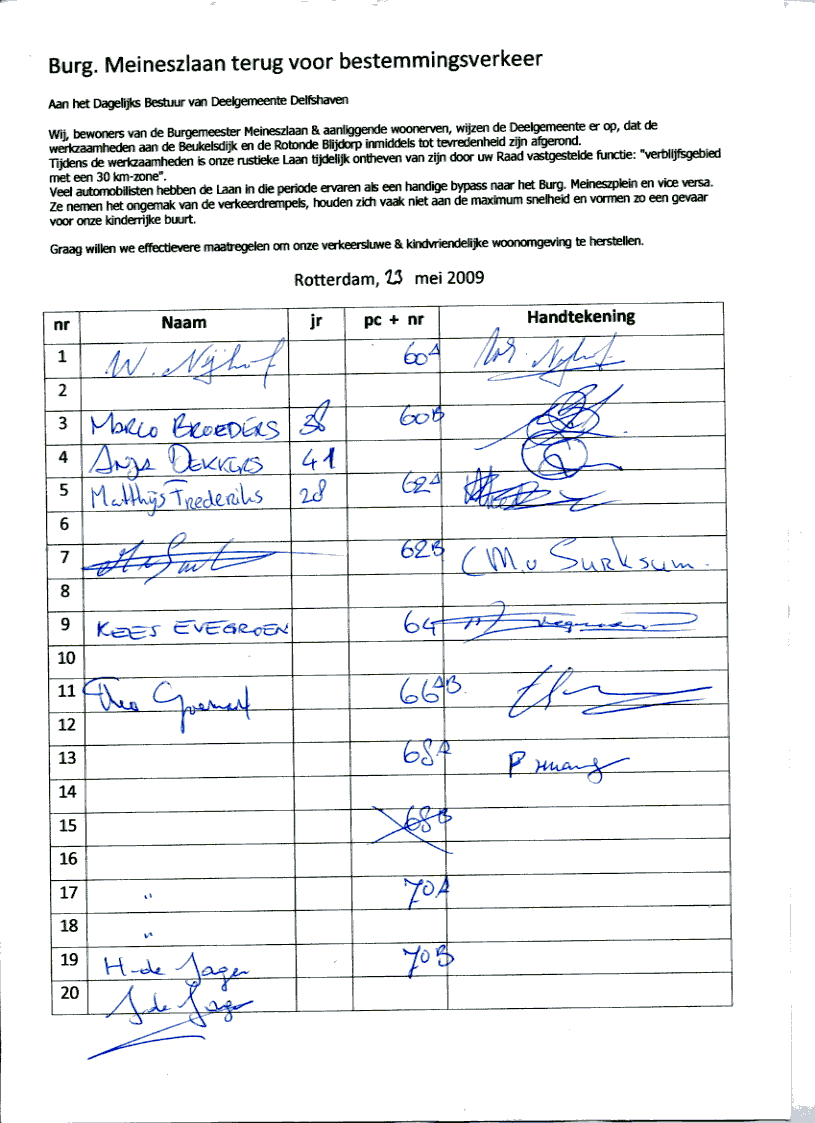 Burg. Meineszlaan terug voor bestemmingsverkeer
Aan het Dagelijks Bestuur van Deelgemeente Delfshaven
Wij, bewoners van de Burgemeester Meineszlaan & aanliggende woonerven, wijzen de Deelgemeente er op, dat de
werkzaamheden aan de Beukelsdijk en de Rotonde Blijdorp inmiddels tot tevredenheid zijn afgerond.
Tijdens de werkzaamheden is onze rustieke Laan tijdelijk ontheven van zijn door uw Raad vastgestelde functie: "verblijfsgebied
met een 30 km-zone".
Veel automobilisten hebben de Laan in die periode ervaren als een handige bypass naar het Burg. Meineszplein en vice versa.
Ze nemen het ongemak van de verkeerdrempels, houden zich vaak niet aan de maximum snelheid en vormen zo een gevaar
voor onze kinderrijke buurt.
Graag willen we effectievere maatregelen om onze verkeersluwe & kindvriendelijke woonomgeving te herstellen.
Rotterdam, 23 mei 2009
nr Naam jr pc + nr Handtekening
1 W. Nijhof 60A W. Nijhof
2
3 Marco BROEDERS 38 60B
4 Anja DEKKERS 41
5 Matthijs Frederiks 28 62A
6
7 62B CM.v Surksum.
8
9 KEES EVEGROEN 64
10
11 Theo 66AB.
12
13 68A
14
15 68B
16
17 " 70A
18 "
19 H. de Jager 70B
20 J de Jager